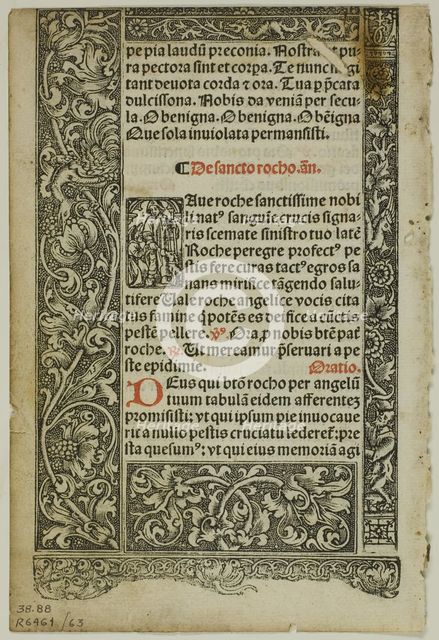 pe pia laudū preconia. Nostra vt pu
ra pectora sint et corpa. Te nunc flagi
tant deuota corda & ora. Tua p̄ p̄cata
dulcissona. Nobis da veniā per secu
la. O benigna. O benigna. O bēigna
Que sola inuiolata permansisti.
¶ De sancto rocho. añ.
Aue roche sanctissime nobi
li natꝰ sanguīe crucis signa
ris scemate sinistro tuo latē
Roche peregre profectꝰ pe
stis fere curans tactꝰ egros sa
nans mirifice tāgendo salu
tifere Uale roche angelice vocis cita
tus famine q potens es deifice a cūctis
pestē pellere. ℣. Ora p nobis btē pat
roche. ℟. Ut mereamur p̄seruari a pe
ste epidimie. Oratio.
DEus qui btō rocho per angelū
tuum tabulā eidem afferentez
promisisti: vt qui ipsum pie inuocaue
rit a nullo pestis cruciatu lederet: pre
sta quesumꝰ: vt qui eius memoriā agi
38.88
R6461/63